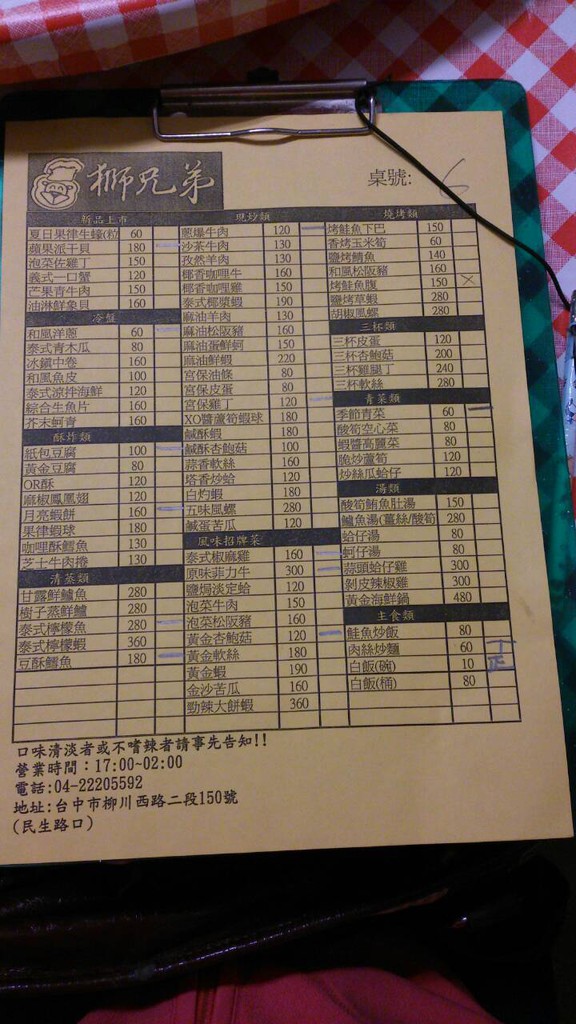 獅兄弟
桌號: 6
新品上市
夏日果律生蠔(粒) 60
蘋果派干貝 180
泡菜佐雞丁 150
義式一口蟹 120
芒果青牛肉 150
油淋鮮象貝 160
冷盤
和風洋蔥 60
泰式青木瓜 80
冰鎮中卷 160
和風魚皮 100
泰式涼拌海鮮 120
綜合生魚片 160
芥末蚵青 160
酥炸類
紙包豆腐 100
黃金豆腐 80
OR酥 120
麻椒鳳凰翅 120
月亮蝦餅 160
果律蝦球 180
咖哩酥鱈魚 130
芝士牛肉捲 130
清蒸類
甘露鮮鱸魚 280
樹子蒸鮮鱸 280
泰式檸檬魚 280
泰式檸檬蝦 360
豆酥鱈魚 180
現炒類
蔥爆牛肉 120
沙茶牛肉 130
孜然羊肉 130
椰香咖哩牛 160
椰香咖哩雞 150
泰式椰漿蝦 190
麻油羊肉 130
麻油松阪豬 160
麻油蛋鮮蚵 150
麻油鮮蝦 220
宮保油條 80
宮保皮蛋 80
宮保雞丁 120
XO醬蘆筍蝦球 180
鹹酥蝦 180
鹹酥杏鮑菇 100
蒜香軟絲 160
塔香炒蛤 120
白灼蝦 180
五味風螺 280
鹹蛋苦瓜 120
風味招牌菜
泰式椒麻雞 160
原味菲力牛 300
鹽焗淡定蛤 120
泡菜牛肉 150
泡菜松阪豬 160
黃金杏鮑菇 120
黃金軟絲 180
黃金蝦 190
金沙苦瓜 160
勁辣大餅蝦 360
燒烤類
烤鮭魚下巴 150
香烤玉米筍 60
鹽烤鯖魚 140
和風松阪豬 160
烤鮭魚腹 150
鹽烤草蝦 280
胡椒鳳螺 280
三杯類
三杯皮蛋 120
三杯杏鮑菇 200
三杯雞腿丁 240
三杯軟絲 280
青菜類
季節青菜 60
酸筍空心菜 80
蝦醬高麗菜 80
脆炒蘆筍 120
炒絲瓜蛤仔 120
湯類
酸筍鮪魚肚湯 150
鱸魚湯(薑絲/酸筍) 280
蛤仔湯 80
蚵仔湯 80
蒜頭蛤仔雞 300
剝皮辣椒雞 300
黃金海鮮鍋 480
主食類
鮭魚炒飯 80
肉絲炒麵 60
白飯(碗) 10
白飯(桶) 80
口味清淡者或不嗜辣者請事先告知!!
營業時間:17:00~02:00
電話:04-22205592
地址:台中市柳川西路二段150號
(民生路口)